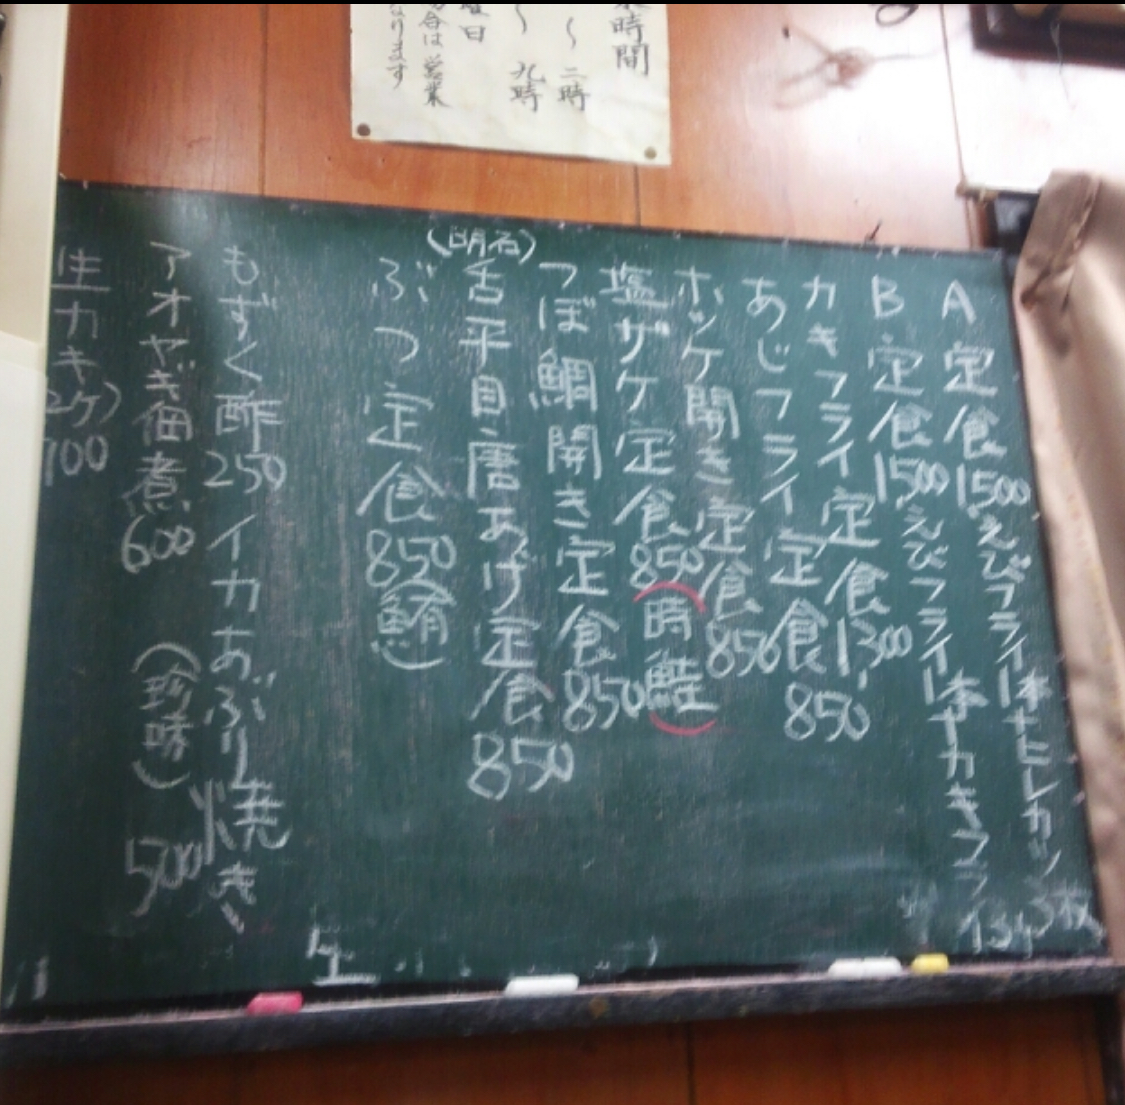 時間
〜二時
〜九時
曜日
合は営業
なります
A定食1500えびフライ1本ヒレカツ3枚
B定食1500えびフライ1本カキフライ
かきフライ定食1300
あじフライ定食850
ホッケ開き定食850
塩ザケ定食850(時鮭)
つぼ鯛開き定食850
(明石)
舌平目唐あげ定食850
ぶつ定食850(鮪)
もずく酢250 イカあぶり焼き
アオヤギ佃煮600 (珍味)500
生カキ
2ケ)